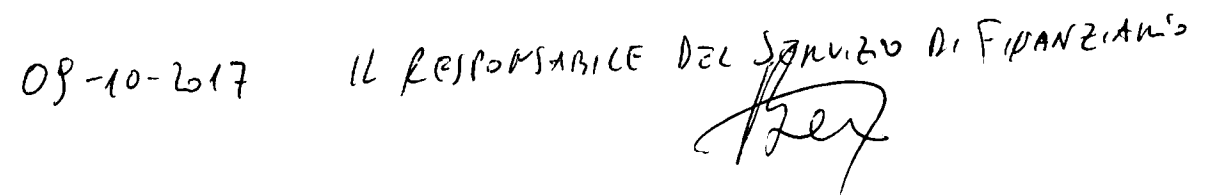 09-10-2017 IL RESPONSABILE DEL SERVIZIO DI FINANZIARIO